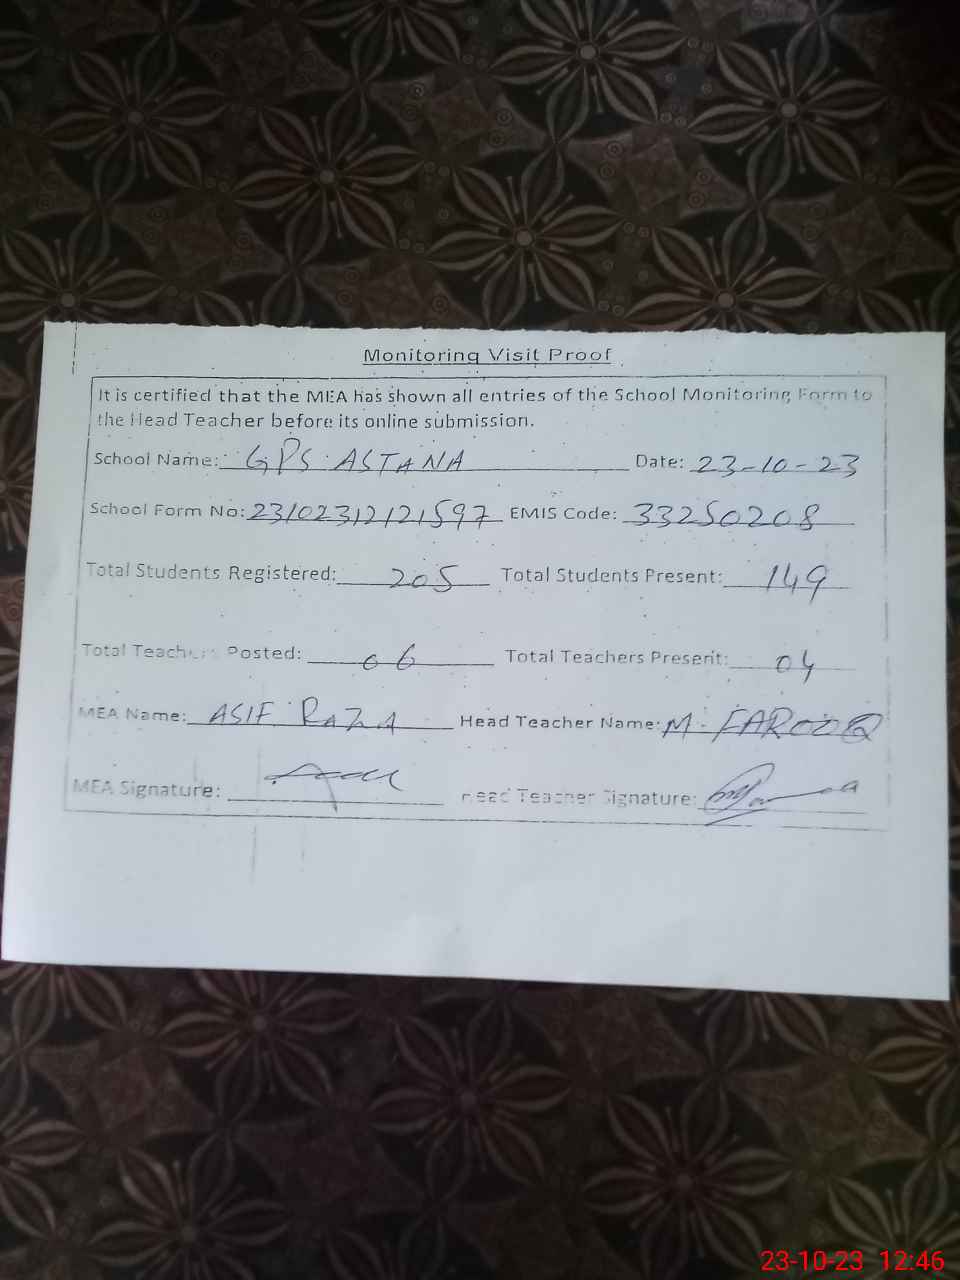 Monitoring Visit Proof
It is certified that the MEA has shown all entries of the School Monitoring Form to
the Head Teacher before its online submission.
School Name: GPS ASTANA Date: 23-10-23
School Form No: 23102312121597 EMIS Code: 33250208
Total Students Registered: 205 Total Students Present: 149
Total Teachers Posted: 06 Total Teachers Present: 04
MEA Name: ASIF RAZA Head Teacher Name: M. FAROOQ
MEA Signature: Head Teacher Signature:
23-10-23 12:46